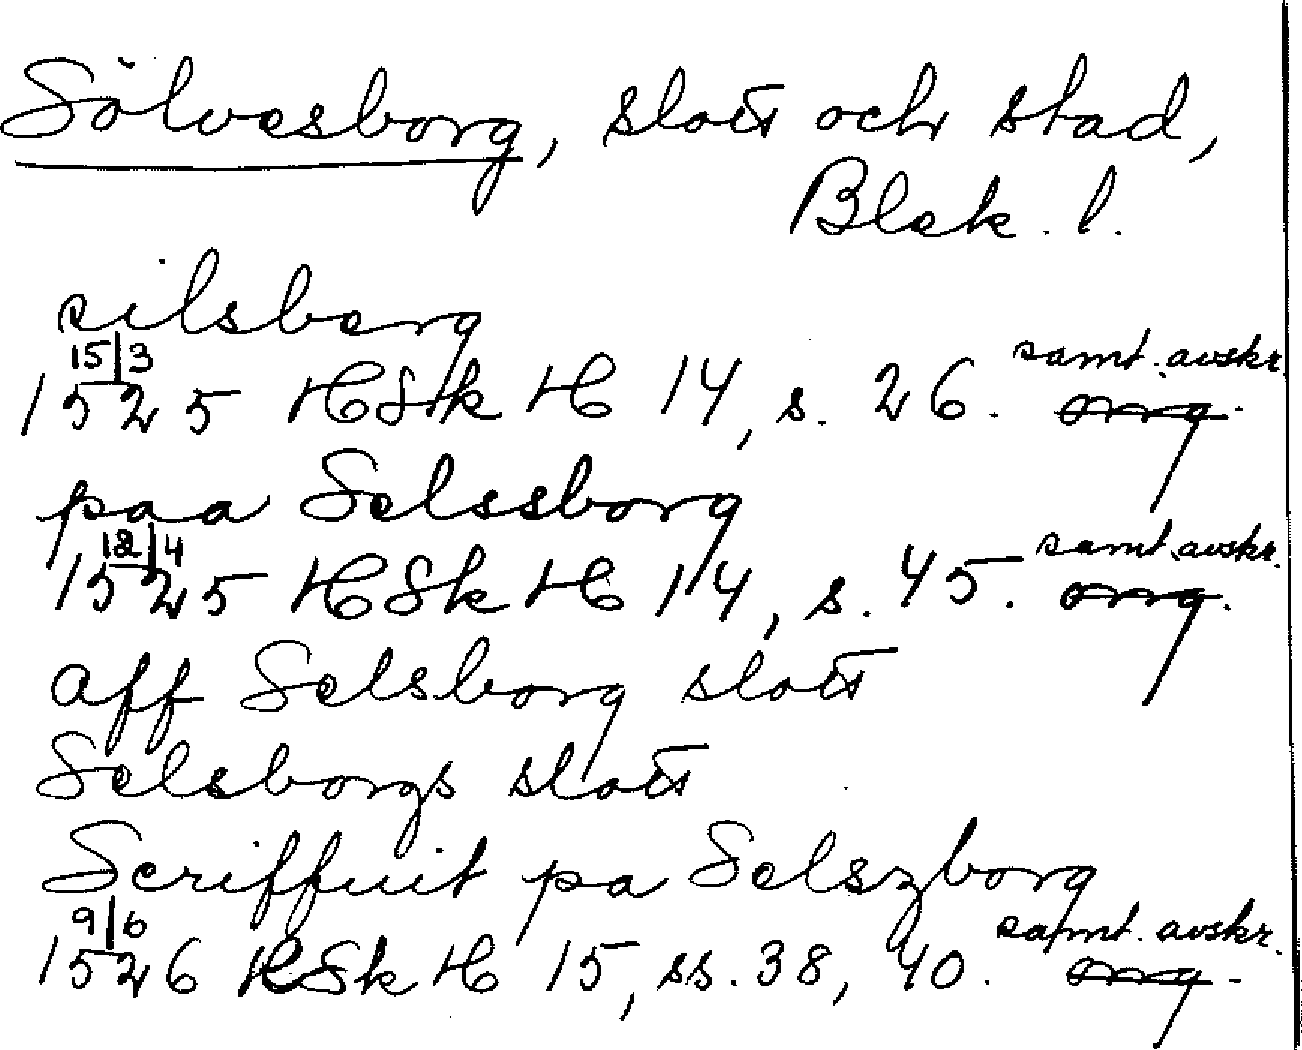 Sölvesborg, slott och stad,
Blek. l.
silsberg
15/3 samt. avskr.
1525 HSk H 14, s. 26. org.
paa Selssborg
12/4 samt. avskr.
1525 HSk H 14, s. 45. org.
aff Selsborg slott
Selsborgs slott
Scriffuit pa Selszborg
9/6 samt. avskr.
1526 HSk H 15, ss. 38, 40. org.